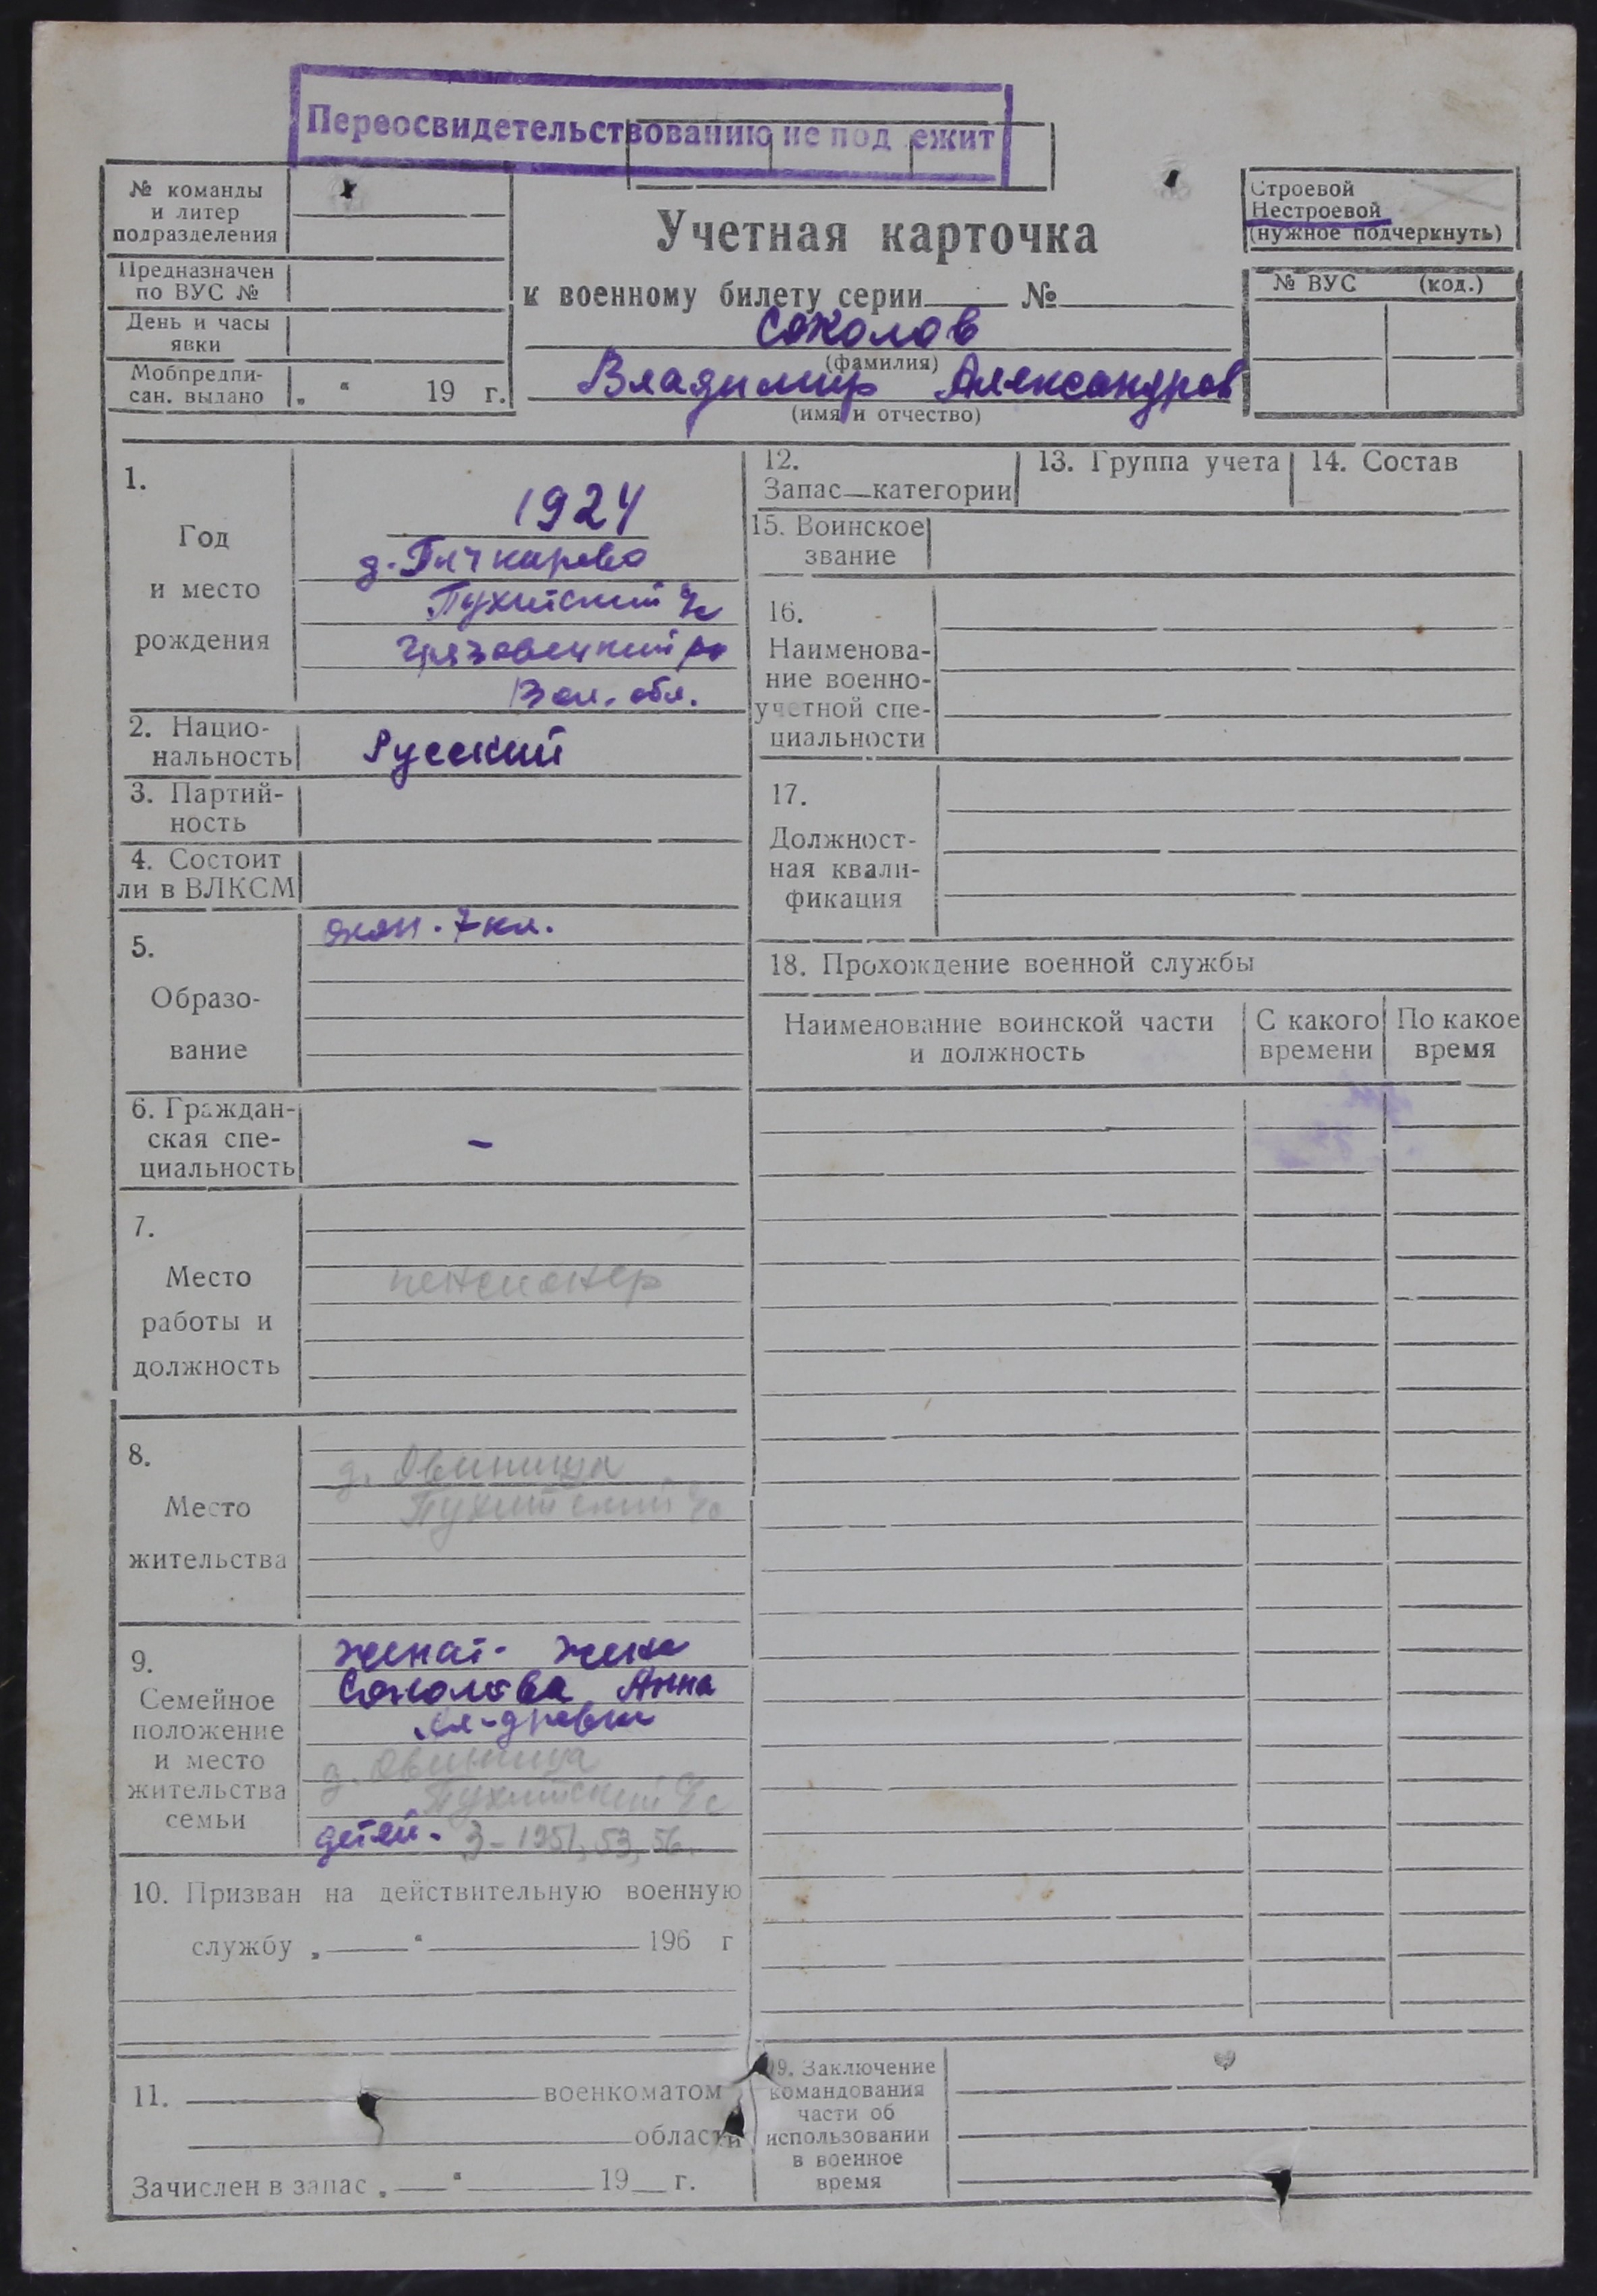 Переосвидетельствованию не под ежит
№ команды
и литер
подразделения
Предназначен
по ВУС №
День и часы
явки
Мобпредпи-
сан. выдано „ “ 19 г.
Учетная карточка
к военному билету серии № 
Соколов
(фамилия)
Владимир Александров
(имя и отчество)
Строевой
Нестроевой
(нужное подчеркнуть)
№ ВУС (код.)
1.
Год
и место
рождения
1924
д.
Пухитский с/с
Грязовецкий р-
Вол. обл.
2. Нацио-
нальность
Русский
3. Партий-
ность
4. Состоит
ли в ВЛКСМ
5.
Образо-
вание
окон. 7 кл.
6. Граждан-
ская спе-
циальность
-
7.
Место
работы и
должность
пенсионер
8.
Место
жительства
д. Овиница
Пухитский с/с
9.
Семейное
положение
и место
жительства
семьи
женат- жена
Соколова Анна
Ал-дровна
д. Овиница
Пухитский с/с
детей- 3-1951, 53, 56.
10. Призван на действительную военную
службу „ “ 196 г
11. военкоматом
области
Зачислен в запас „ “ 19 г.
12.
Запас—категории
13. Группа учета
14. Состав
15. Воинское
звание
16.
Наименова-
ние военно-
учетной спе-
циальности
17.
Должност-
ная квали-
фикация
18. Прохождение военной службы
Наименование воинской части
и должность
С какого
времени
По какое
время
19. Заключение
командования
части об
использовании
в военное
время